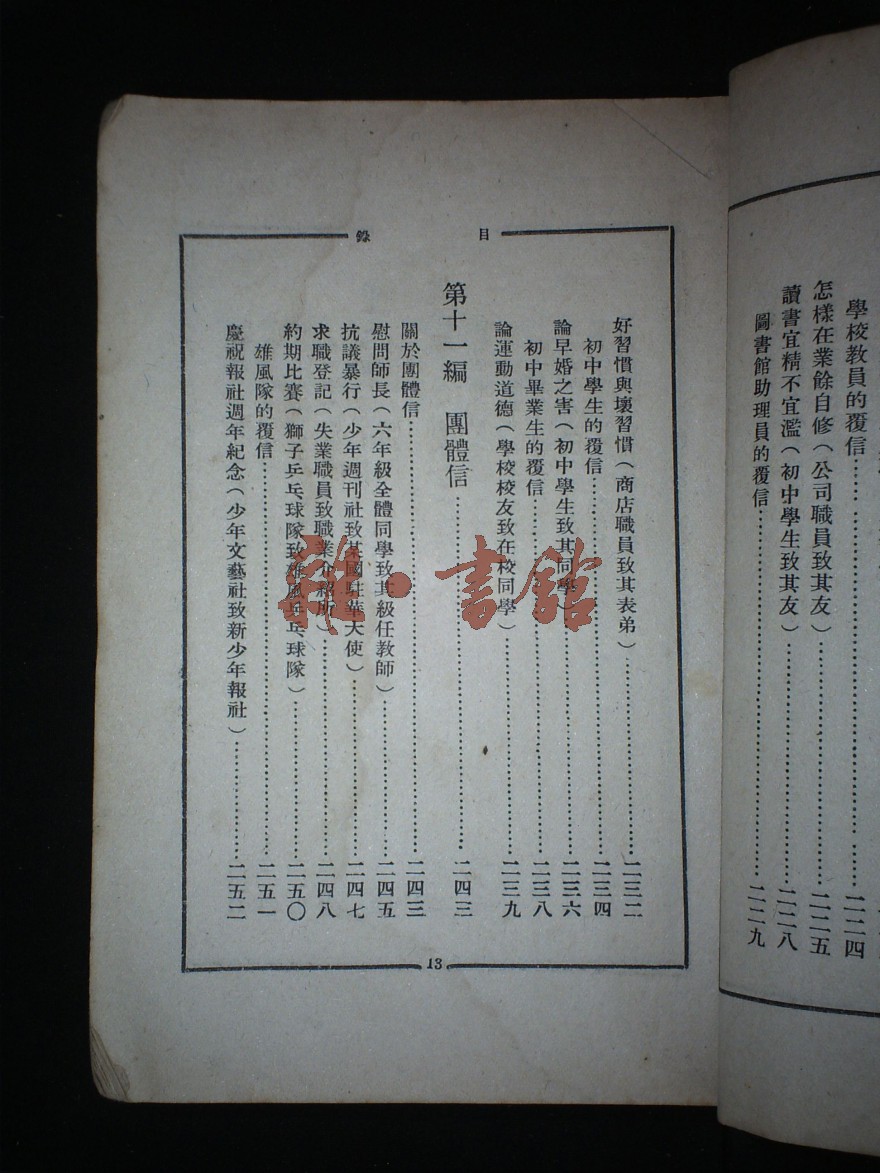 學校教員的覆信……二二四
怎樣在業餘自修（公司職員致其友）……二二五
讀書宜精不宜濫（初中學生致其友）……二二八
圖書館助理員的覆信……二二九
目錄
好習慣與壞習慣（商店職員致其表弟）……二三二
初中學生的覆信……二三四
論早婚之害（初中學生致其同學）……二三六
初中畢業生的覆信……二三八
論運動道德（學校校友致在校同學）……二三九
第十一編 團體信……二四三
關於團體信……二四三
慰問師長（六年級全體同學致其級任教師）……二四五
抗議暴行（少年週刊社致某國駐華大使）……二四七
求職登記（失業職員致職業介紹所）……二四八
約期比賽（獅子乒乓球隊致雄風乒乓球隊）……二五〇
雄風隊的覆信……二五一
慶祝報社週年紀念（少年文藝社致新少年報社）……二五二
13
雜·書館